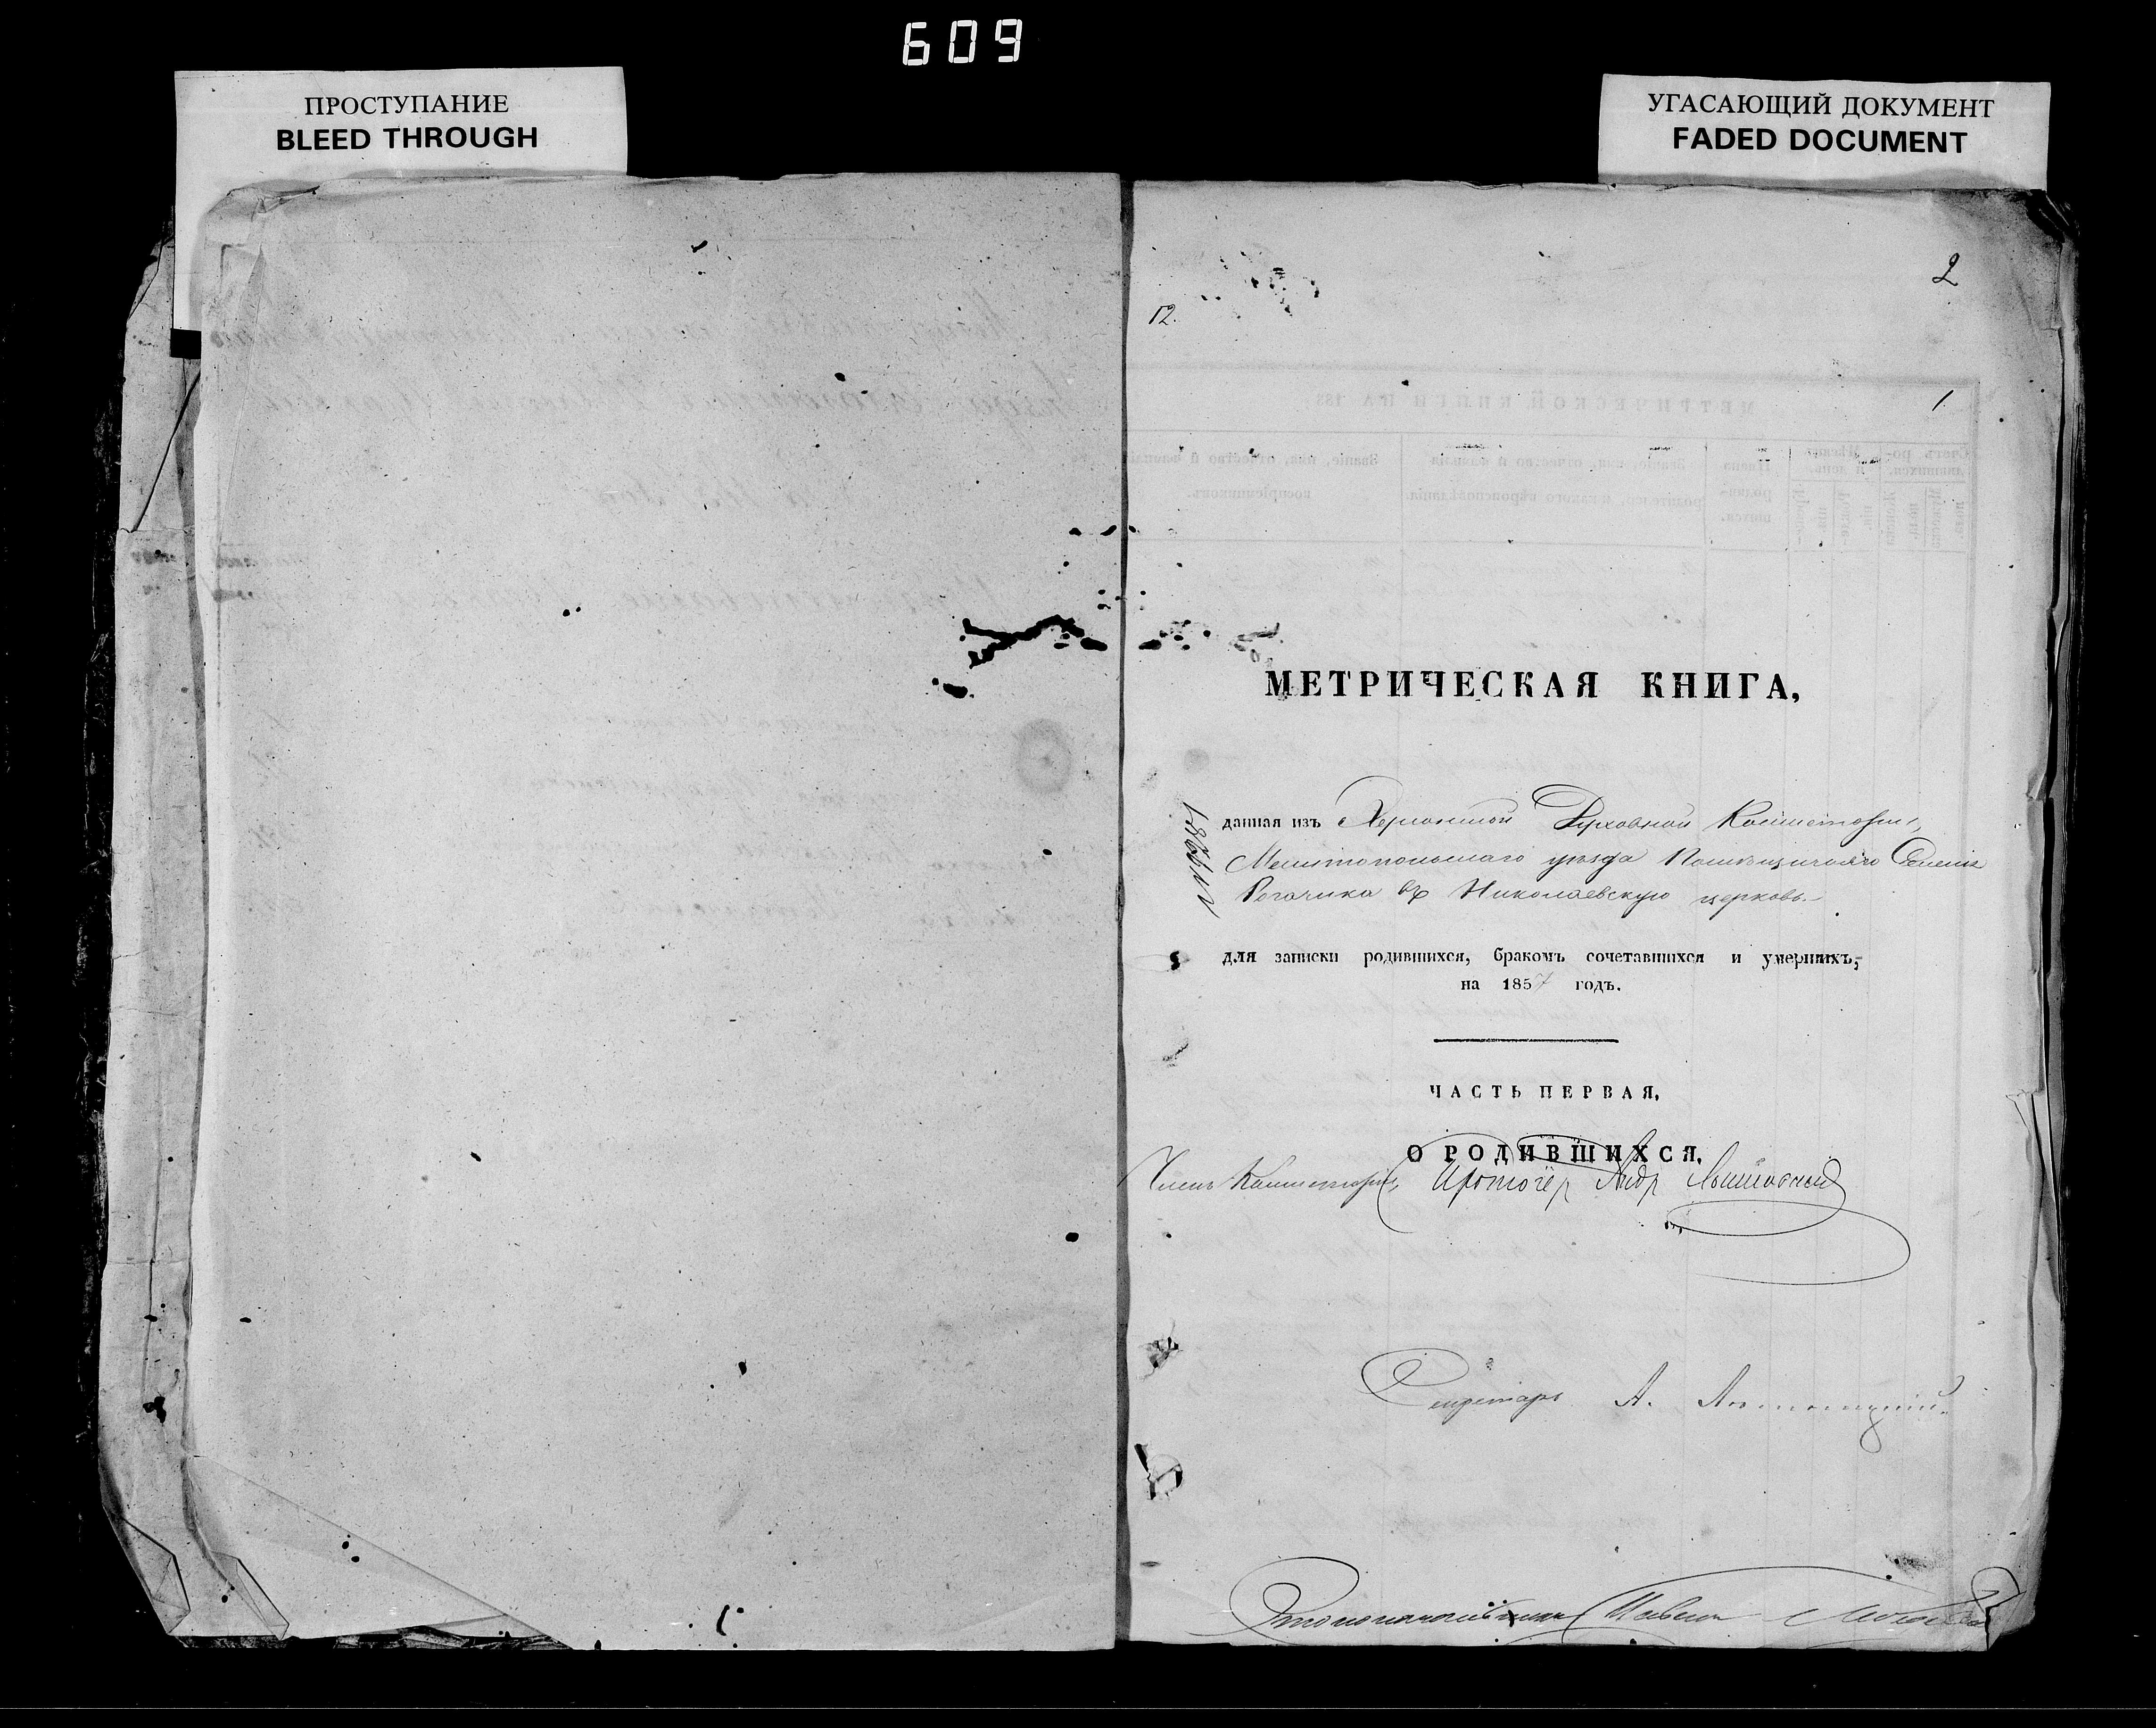 609
ПРОСТУПАНИЕ
BLEED THROUGH
УГАСАЮЩИЙ ДОКУМЕНТ
FADED DOCUMENT
2
12.
1
МЕТРИЧЕСКАЯ КНИГА,
данная изъ Херсонской Духовной Консисторіи,
Мелитопольскаго уѣзда Помѣщичьяго Селенія
Рогачика въ Николаевскую церковь.
для записки родившихся, бракомъ сочетавшихся и умершихъ,
на 1857 годъ.
ЧАСТЬ ПЕРВАЯ,
О РОДИВШИХСЯ.
Членъ Консисторіи, Протоіер Андр
Секретарь А.